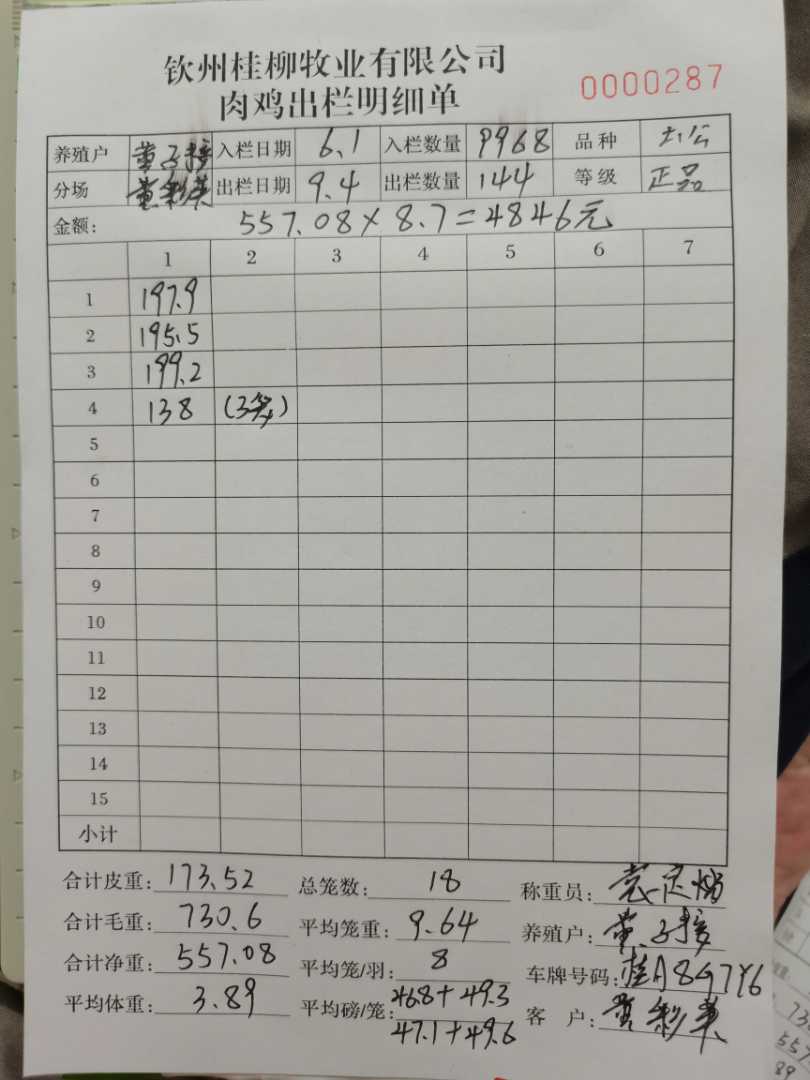 钦州桂柳牧业有限公司
肉鸡出栏明细单
0000287
养殖户 黄 入栏日期 6.1 入栏数量 9968 品种 土公
分场 黄彩英 出栏日期 9.4 出栏数量 144 等级 正品
金额: 557.08×8.7=4846元
1 2 3 4 5 6 7
1 197.9
2 195.5
3 199.2
4 138 (3笼)
5
6
7
8
9
10
11
12
13
14
15
小计
合计皮重: 173.52 总笼数: 18 称重员:
合计毛重: 730.6 平均笼重: 9.64 养殖户: 黄
合计净重: 557.08 平均笼/羽: 8 车牌号码: 桂A8G7Y6
平均体重: 3.89 平均磅/笼: 46.8+49.3 客 户: 黄彩英
47.1+49.6